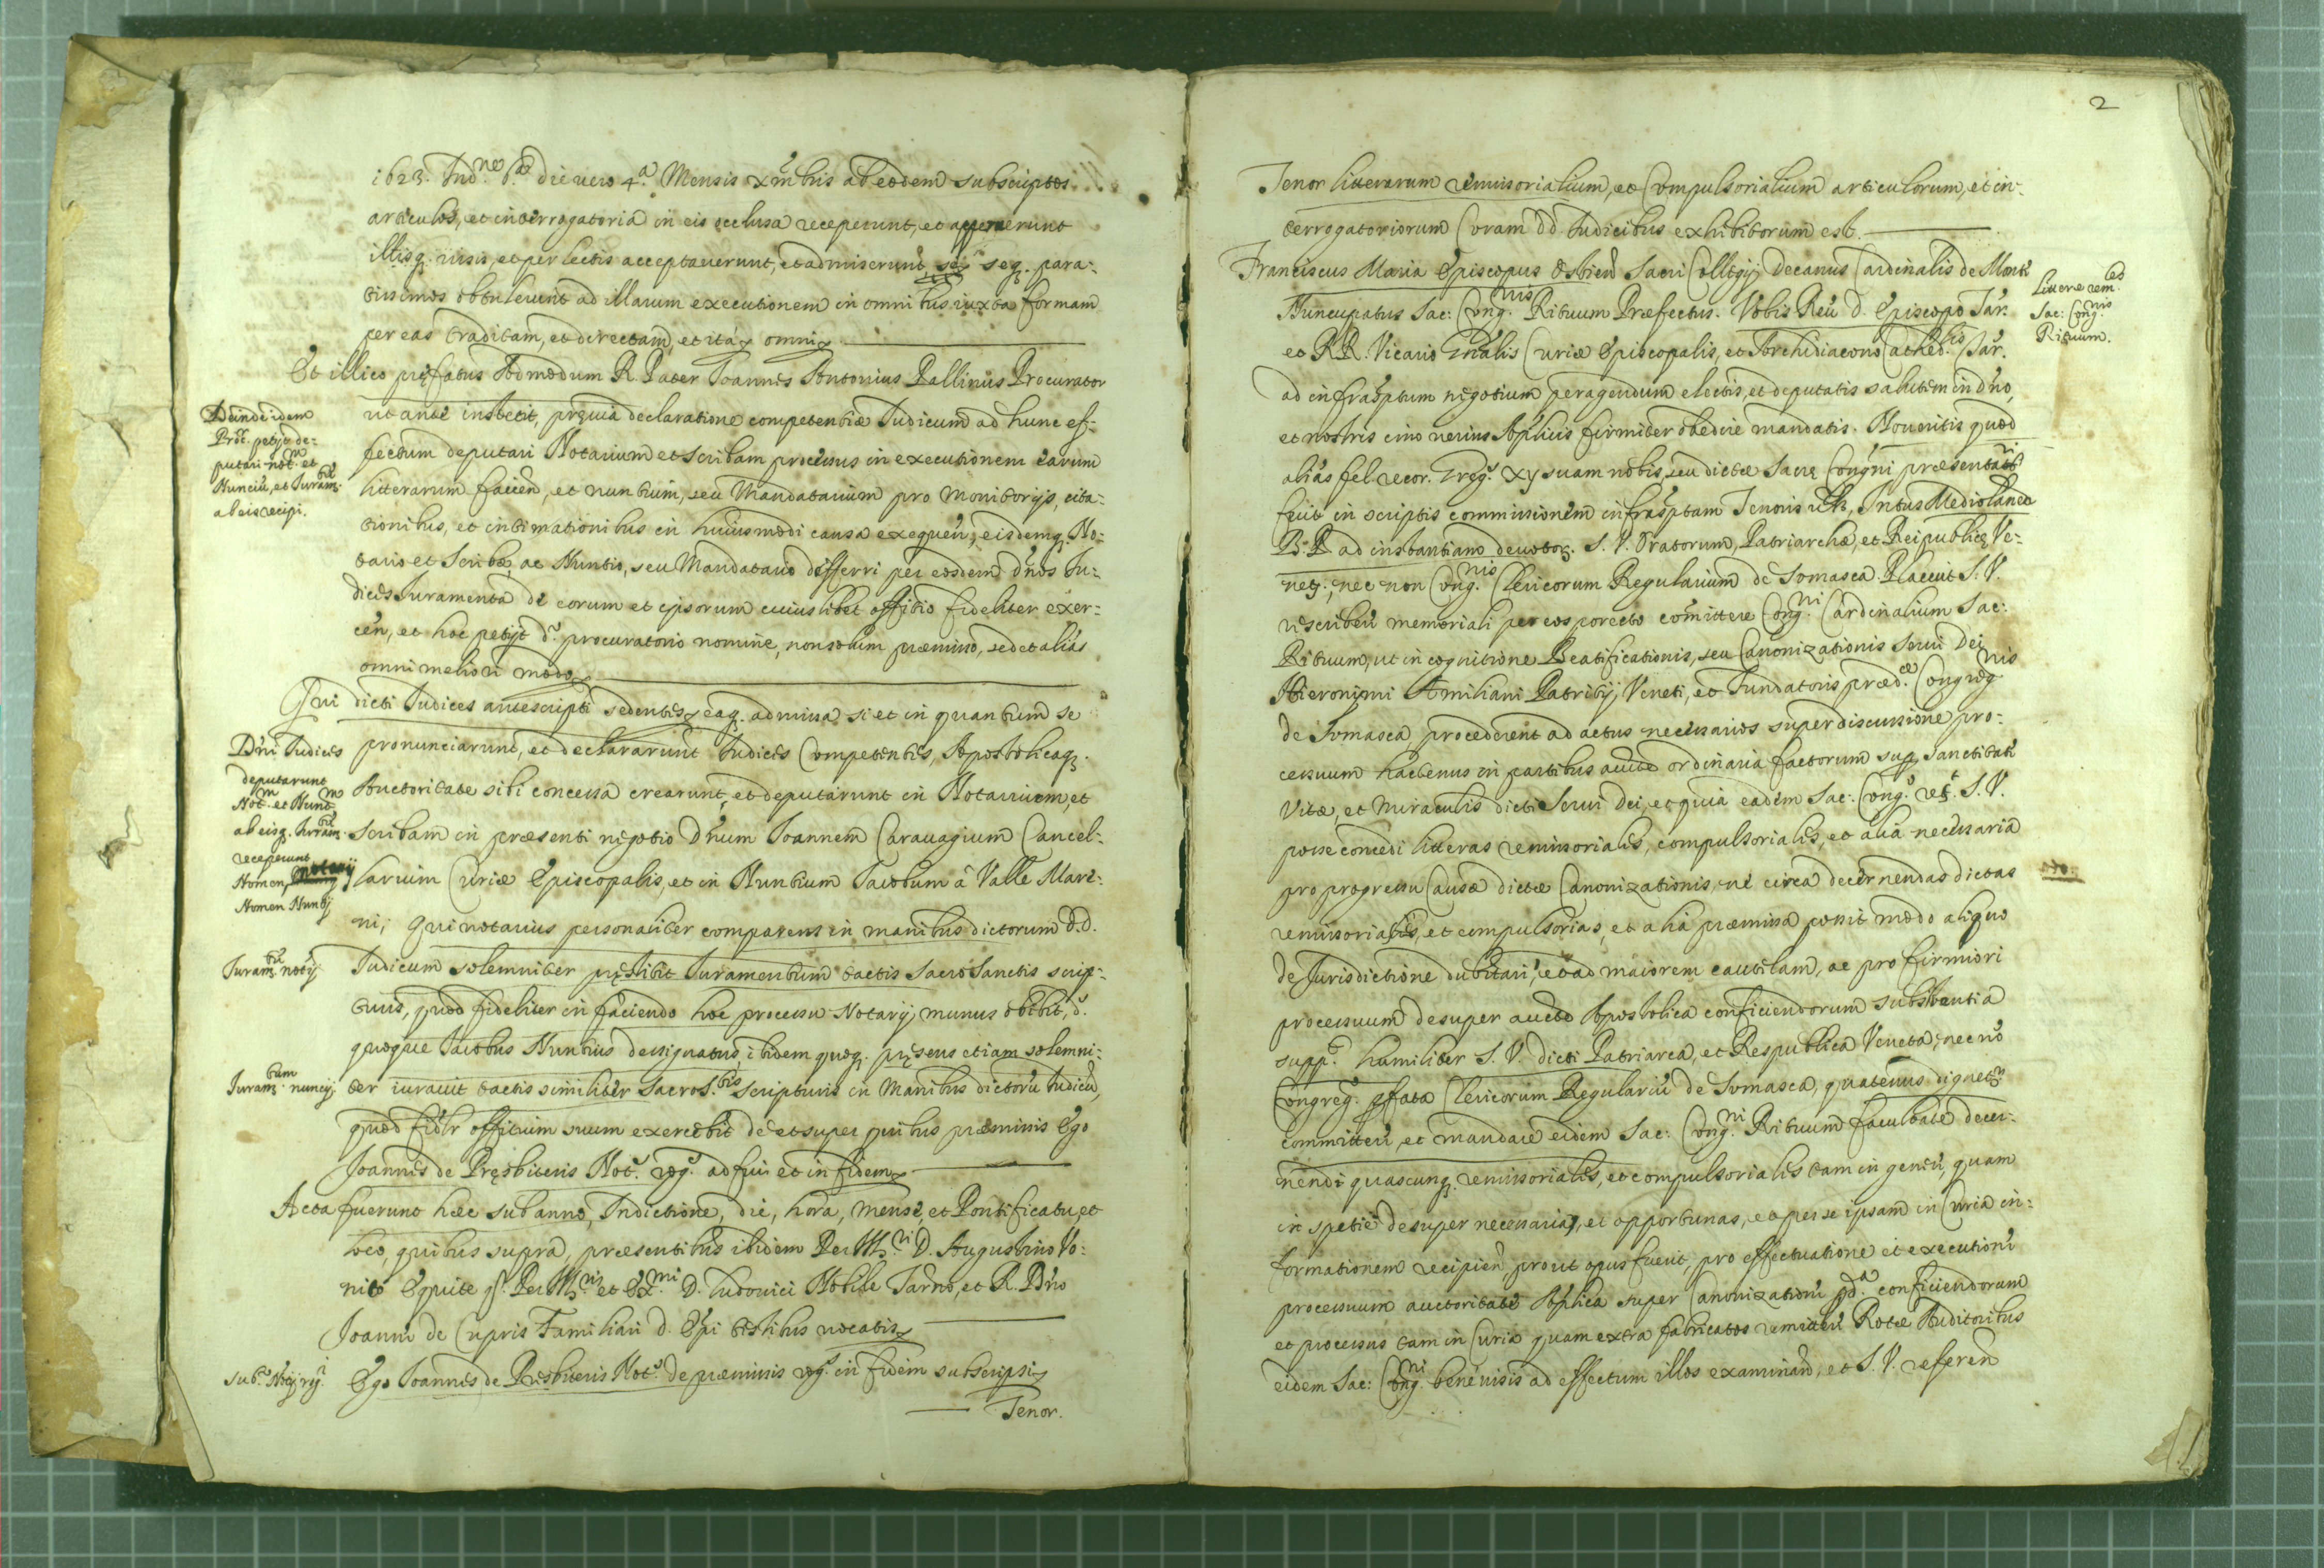 1623. Ind.ne 6.a die vero 4.a Mensis Xmbris ab eodem subscriptos
articulos, et interrogatoria in eis occlusa receperunt, et apperuerunt
illisq. visis, et perlectis acceptaverunt, et admiserunt, seq. para-
tissimos obtulerunt ad illarum executionem in omnibus iuxta formam
per eas traditam, et directam, et ita omni
Et illico prefatus Admodum R. Pater Joannes Antonius Pallinus Procurator
ut ante institit, previa declaratione competentiæ Judicum ad hunc ef-
fectum deputari Notarium et scribam processus in executionem earum
literarum facien, et nuntium, seu Mandatarium pro monitorijs, cita-
tionibus, et intimationibus in huiusmodi causa exequen, eisdemq. No-
tario et Scribæ, ac Nuntio, seu Mandatario differri per eosdem dnos Ju-
dices Juramenta de eorum et ipsorum cuiuslibet offitio fideliter exer-
cen, et hoc petijt d.o procuratorio nomine, non solum præmisso, sed et alias
omni meliori modo
Deinde idem
Proc. petijt de-
putari not.m et
Nunciu, et Juram.tu
ab eis recipi.
Qui dicti Judices antescripti sedentes eaq. admissa si et in quantum se
pronunciarunt, et declararunt Judices Competentes, Apostolicaq.
Auctoritate sibi concessa crearunt, et deputarunt in Notarium, et
scribam in præsenti negotio Dnum Joannem Caravagium Cancel-
larium Curiæ Episcopalis, et in Nuntium Jacobum à Valle Mare-
ni; Qui notarius personaliter comparens in manibus dictorum D.D.
Judicum solemniter prestitit Juramentum tactis Sacro Sanctis scrip-
turis, quod fideliter in faciendo hoc processu Notarij munus obibit, d.o
quoque Jacobus Nuntius designatus ibidem quoq. presens etiam solemni-
ter iuravit tactis similiter SacroS.tis scripturis in Manibus dictoru Judicu,
quod fidelr offitium suum exercebit de et super quibus præmissis Ego
Joannes de Presbiteris Not.s rog.s adfui et in fidem
Dni Judices
deputarunt
Not.m et Nunt.m
ab eisq. Juram.tu
receperunt
Nomen notarij
Nomen Nuntij
Juram.tu notij
Juram.tum nuncij
Acta fuerunt hæc sub anno, Indictione, die, hora, mense, et Pontificatu, et
loco, quibus supra, præsentibus ibidem Per Ill.ri D. Augustino Vo-
nito Equite q. Per Ill.ris et Ex.mi D. Ludovici Nobile Tarno, et R. Dno
Joanne de Cupris Familiari d. Epi testibus vocatis
Ego Joannes de Presbiteris Not.s de præmissis rog.s in fidem subscripsi
Tenor.
2
Tenor litterarum remissorialium, et Compulsorialium articulorum, et in-
terrogatoriorum Coram DD. Judicibus exhibitorum est.
Franciscus Maria Episcopus Ostien Sacri Collegij Decanus Cardinalis de Monte
Nuncupatus Sac: Cong.nis Rituum Præfectus. Vobis Reu d. Episcopo Tar.
et R.R. Vicario Gnalis Curiæ Episcopalis, et Archidiacono Cathed.lis Tar.
ad infrasptum negotium peragendum electis, et deputatis salutem in dno,
et nostris imo verius Aplicis firmiter obedire mandatis. Noveritis quod
alias fel. recor. Greg.s XV suam nobis, seu dictæ Sacrę Congni præsentari
fecit in scriptis commissionem infrasptam Tenoris ult.
B.P. ad instantiam devotor. S.V. Oratorum, Patriarchæ, et Reipublicę Ve-
netę; nec non Cong.nis Clericorum Regularium de Somasca Placuit S.V.
rescribere memoriali per eos porrecto comittere Cong.ni Cardinalium Sac:
Rituum, ut in cognitione Beatificationis, seu Canonizationis Servi Dei
Hieronimi Æmiliani Patritij Veneti, et Fundatoris præd.æ Congreg.nis
de Somasca, procederent ad actus necessarios super discussione pro-
cessuum hactenus in partibus aucte ordinaria factorum sup. sanctitate
Vitæ, et miraculis dicti Servi Dei, et quia eadem Sac: Cong.o S.V.
posse concedi litteras remissoriales, compulsoriales, et alia necessaria
pro progressu Causæ dictæ Canonizationis, ne circa decernendas dictas
remissoriales, et compulsorias, et alia præmissa possit modo aliquo
de Jurisdictione dubitari, et ad maiorem cautelam, ac pro firmiori
processuum desuper aucte Apostolica conficiendorum substantia
supp.t humiliter S.V. dicti Patriarca, et Respublica Veneta, nec no
Congreg.o pfata Clericorum Regulariu de Somasca, quatenus dignetr
committere, et mandare eidem Sac: Cong.ni Rituum facultate decer-
nendi quascunq. remissoriales, et compulsoriales tam in genere, quam
in spetie desuper necessarias, et opportunas, et per se ipsam in Curia in-
formationem recipien, prout opus fuerit, pro effectuatione et executione
processuum auctoritate Aplica super Canonizatione pd.a conficiendorum
et processus tam in Curia quam extra fabricatos remittere Rotæ Auditoribus
eidem Sac: Cong.ni bene visis ad effectum illos examinand, et S.V. referen
Littere rem.les
Sac: Cong.nis
Rituum.